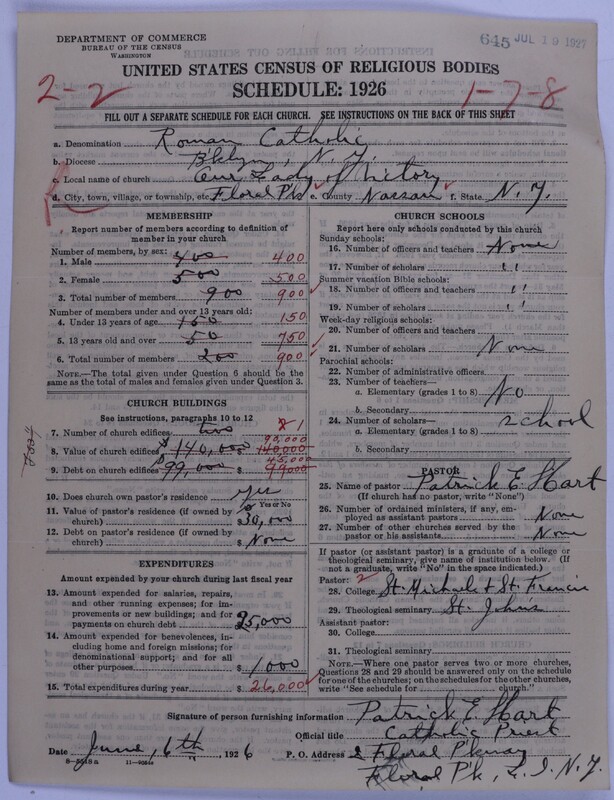 DEPARTMENT OF COMMERCE
BUREAU OF THE CENSUS
WASHINGTON
645 JUL 19 1927
UNITED STATES CENSUS OF RELIGIOUS BODIES
SCHEDULE: 1926
2-2
1-7-8
FILL OUT A SEPARATE SCHEDULE FOR EACH CHURCH. SEE INSTRUCTIONS ON THE BACK OF THIS SHEET
a. Denomination Roman Catholic
b. Diocese Bklyn, N.Y.
c. Local name of church Our Lady of Victory
d. City, town, village, or township, etc. Floral Pk e. County Nassau f. State N.Y.
MEMBERSHIP
Report number of members according to definition of
member in your church
Number of members, by sex:
1. Male 400 400
2. Female 500 500
3. Total number of members 900 900
Number of members under and over 13 years old:
4. Under 13 years of age 150 150
5. 13 years old and over 50 750
6. Total number of members 200 900
NOTE.—The total given under Question 6 should be
the same as the total of males and females given under Question 3.
CHURCH BUILDINGS
See instructions, paragraphs 10 to 12
7. Number of church edifices two 1
90,000
8. Value of church edifices $ 140,000 140000
45,000
9. Debt on church edifices $ 99,000 99000
10. Does church own pastor's residence yes
Yes or No
11. Value of pastor's residence (if owned by
church) $ 30,000
12. Debt on pastor's residence (if owned by
church) $ None
EXPENDITURES
Amount expended by your church during last fiscal year
13. Amount expended for salaries, repairs,
and other running expenses; for im-
provements or new buildings; and for
payments on church debt 25,000
14. Amount expended for benevolences, in-
cluding home and foreign missions; for
denominational support; and for all
other purposes $ 1000
15. Total expenditures during year $ 26,000
CHURCH SCHOOLS
Report here only schools conducted by this church
Sunday schools:
16. Number of officers and teachers None
17. Number of scholars "
Summer vacation Bible schools:
18. Number of officers and teachers "
19. Number of scholars "
Week-day religious schools:
20. Number of officers and teachers
21. Number of scholars None
Parochial schools:
22. Number of administrative officers
23. Number of teachers—
a. Elementary (grades 1 to 8) No
b. Secondary
24. Number of scholars— school
a. Elementary (grades 1 to 8)
b. Secondary
PASTOR
25. Name of pastor Patrick E Hart
(If church has no pastor, write "None")
26. Number of ordained ministers, if any, em-
ployed as assistant pastors None
27. Number of other churches served by the
pastor or his assistants None
If pastor (or assistant pastor) is a graduate of a college or
theological seminary, give name of institution below. (If
not a graduate, write "No" in the space indicated.)
Pastor: 2
28. College St. Michaels & St. Francis
29. Theological seminary St. Johns
Assistant pastor:
30. College
31. Theological seminary
NOTE.—Where one pastor serves two or more churches,
Questions 28 and 29 should be answered only on the schedule
for one of the churches; on the schedules for the other churches,
write "See schedule for church."
Signature of person furnishing information Patrick E. Hart
Official title Catholic Priest
Date June 6th, 1926 P. O. Address 2 Floral Pkway
8-5518a 11-9564
Floral Pk, L. I. N.Y.